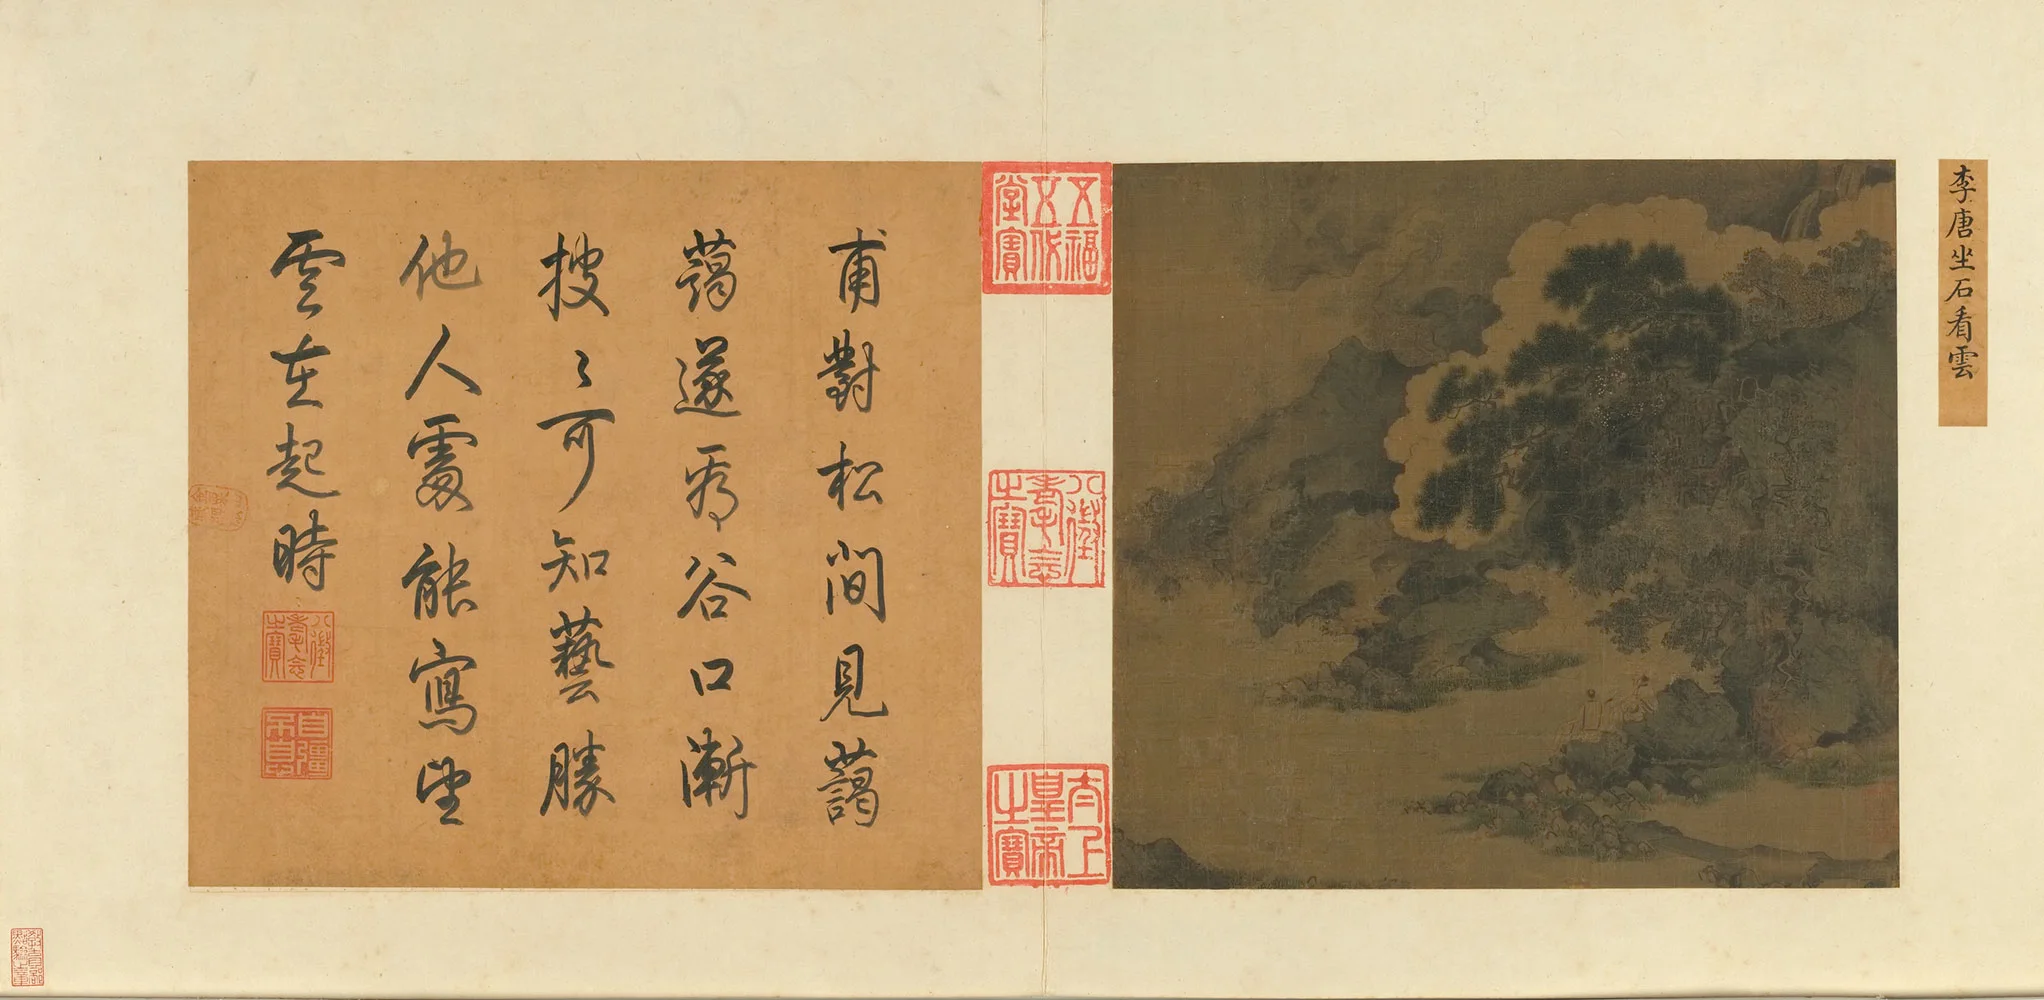 李唐坐石看雲
五福五代堂寶
八徵耄念之寶
太上皇帝之寶
甫對松間見藹
藹遂谷口漸
披〻可知藝勝
他人處能寫坐
雲在起時
八徵耄念之寶
自彊不息